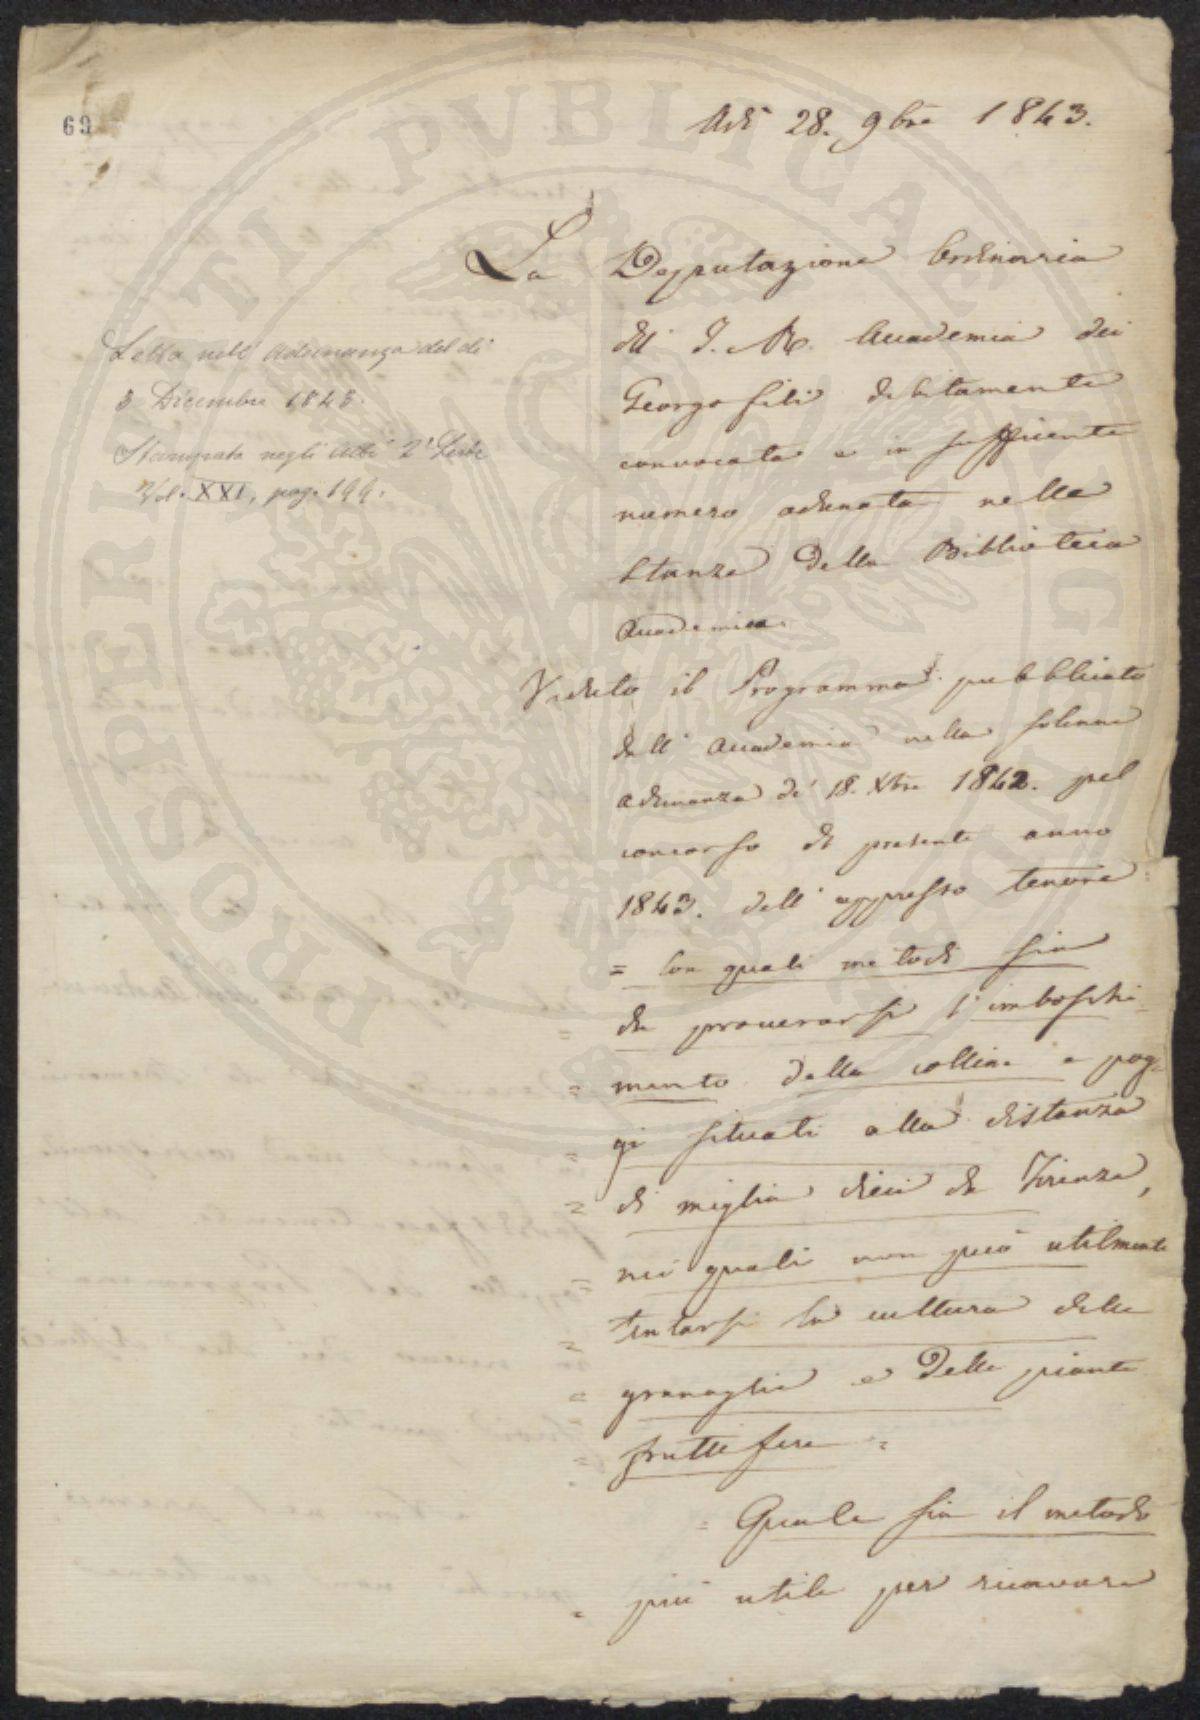 69
Adì 28. 9bre 1843.
La Deputazione Ordinaria
dell' I. R. Accademia dei
Georgofili debitamente
convocata e in sufficiente
numero adunata nelle
Stanze della Biblioteca
Accademica.
Letta nell' Adunanza del dì
3 Dicembre 1843.
Stampata negli Atti 2ª Serie
Vol. XXI, pag. 199.
Veduto il Programma pubblicato
dall' Accademia nella solenne
adunanza de' 18. Xbre 1842. pel
concorso del presente anno
1843. dell' appresso tenore
= Con quali metodi sia
= da procurarsi l'imboschi-
= mento delle colline e pog-
= gi situati alla distanza
= di miglia dieci da Firenze,
= nei quali non può utilmente
= tentarsi la cultura delle
= granaglie e delle piante
= fruttifere =
= Quale sia il metodo
= più utile per ricavare
PROSPERITATI PVBLICAE AVGENDAE